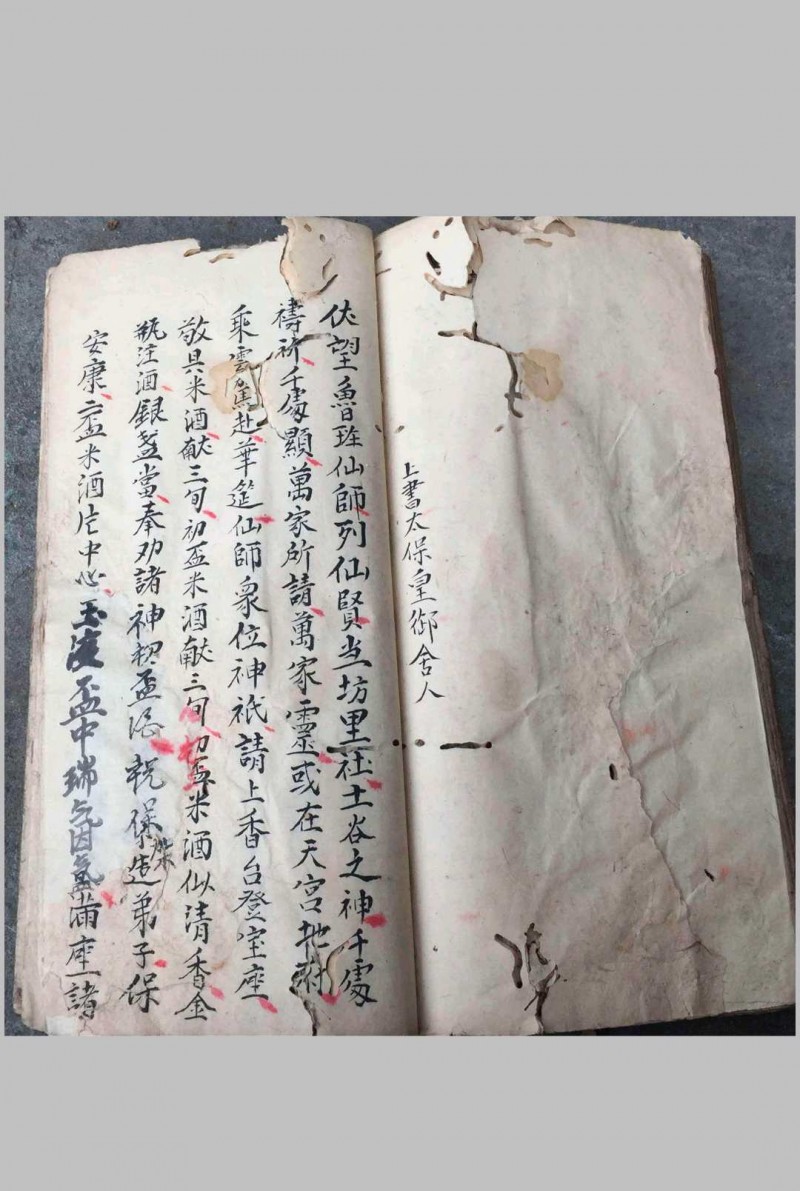 上書太保皇御舍人
伏望魯班仙師列仙賢当坊里社土谷之神千處
禱祈千處顯萬家所請萬家靈或在天宮地附
乘雲駕赴華筵仙師衆位神祇請上香台登宝座
敬具米酒献三旬初盃米酒献三旬初盃米酒似清香金
瓶注酒銀盞當奉劝諸神初盃酒祝保造弟子保
安康二盃米酒片中心玉液盃中瑞气因氲滿座諸